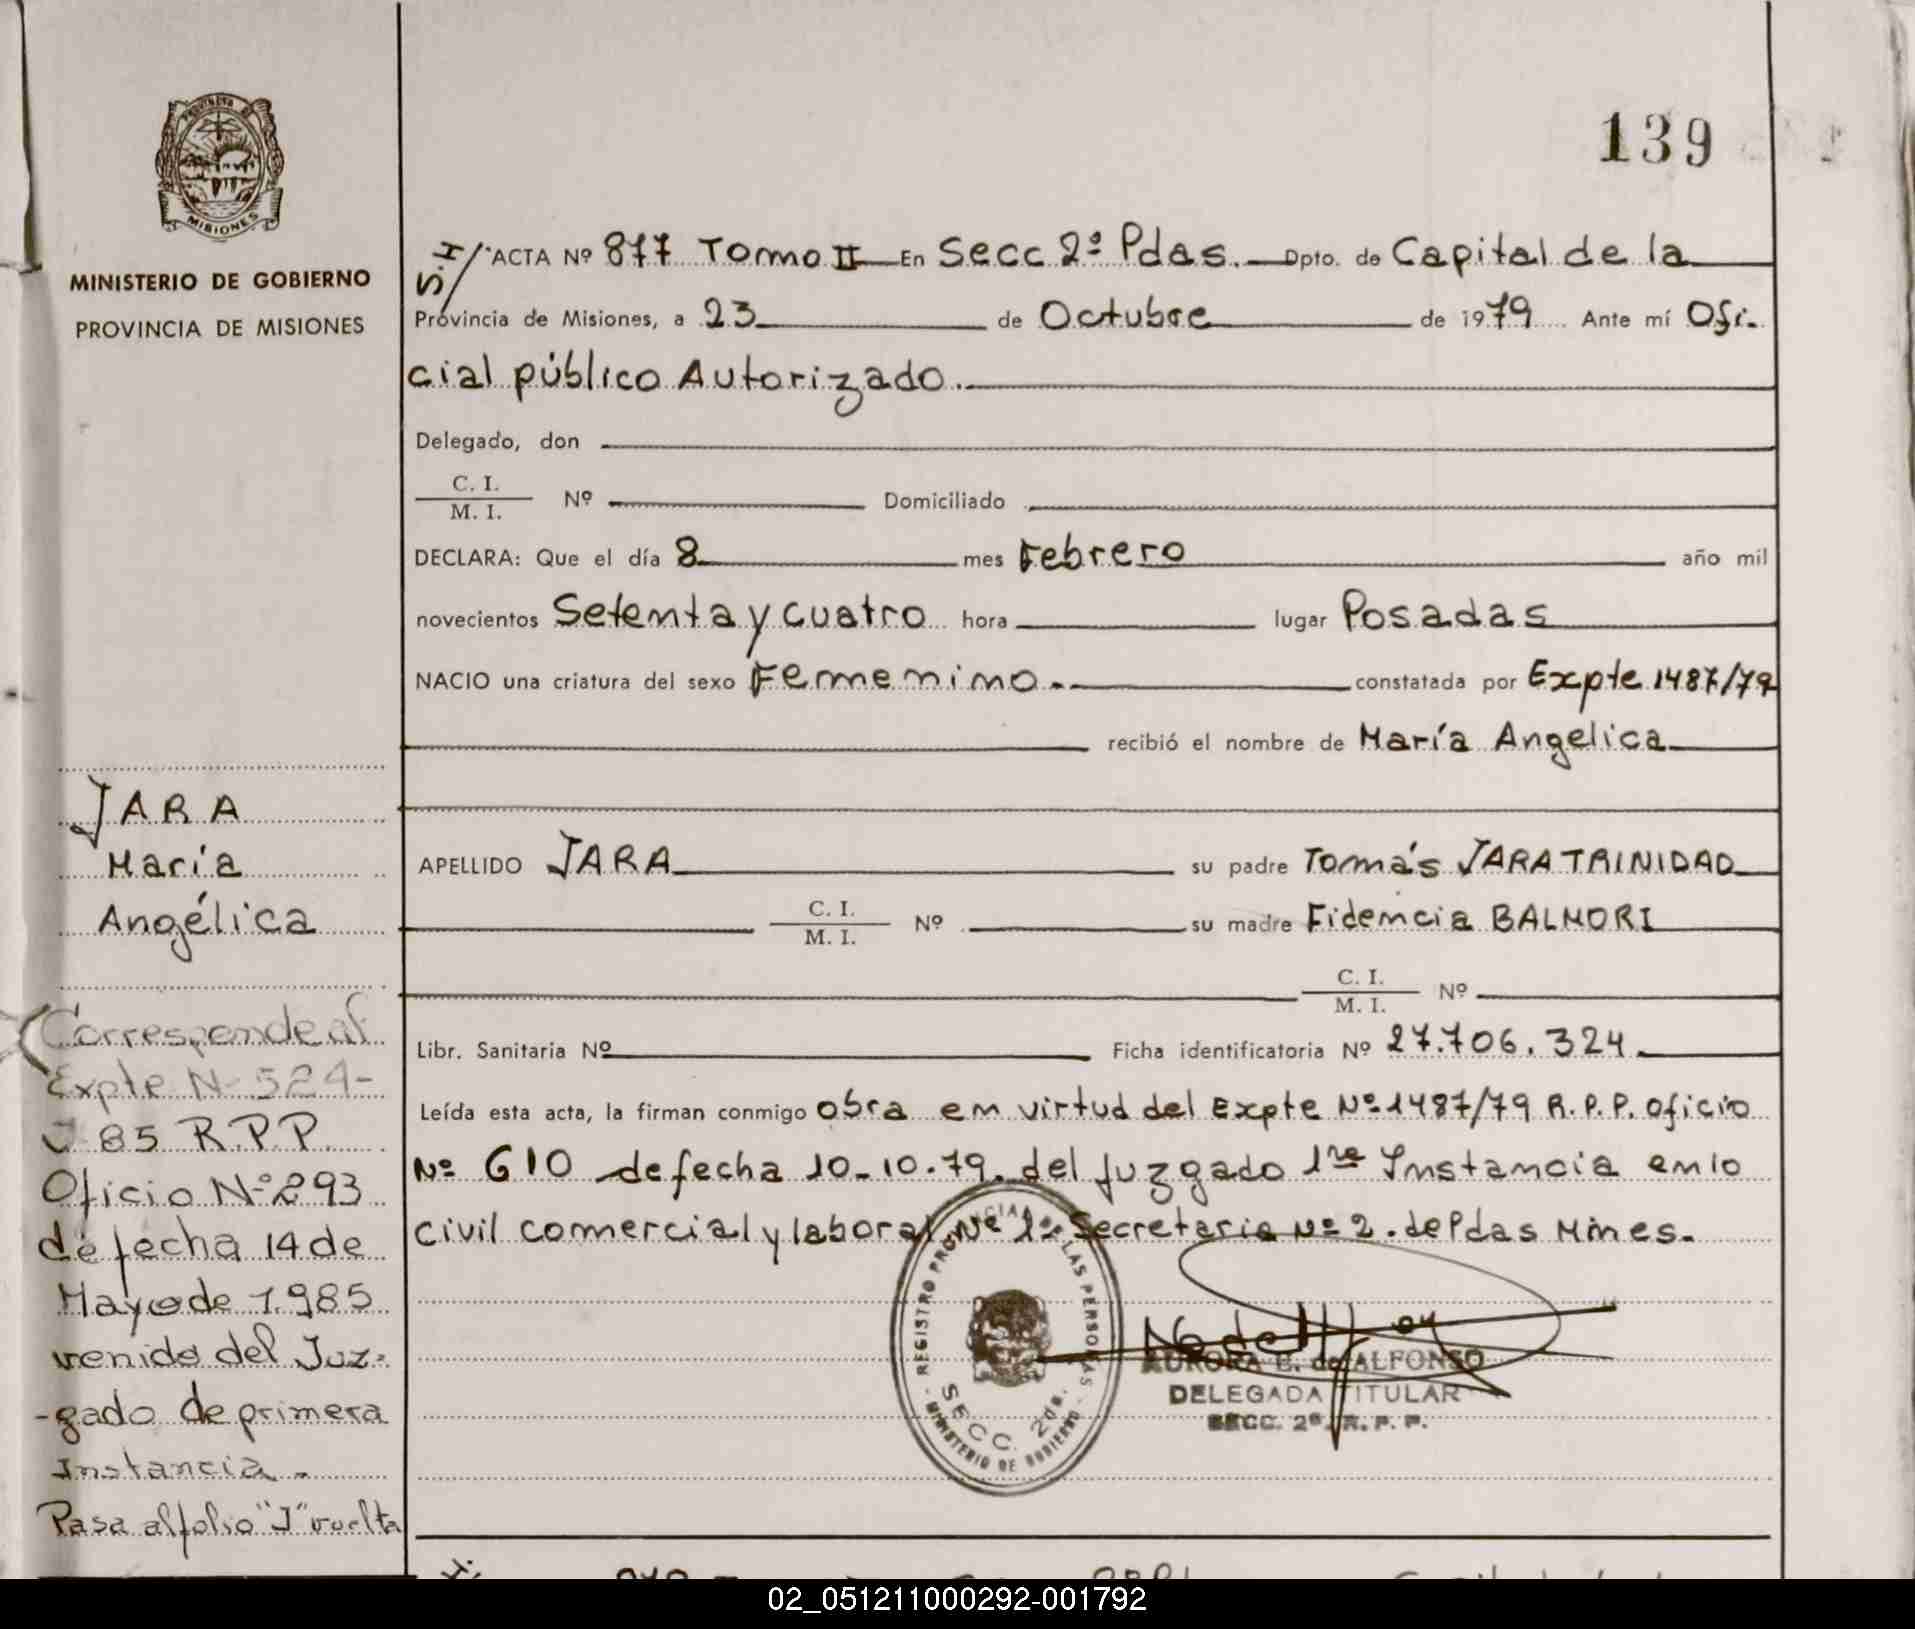 139
PROVINCIA DE
MISIONES
MINISTERIO DE GOBIERNO
PROVINCIA DE MISIONES
S.I/ ACTA Nº 877 Tomo II En Secc 2ª Pdas. Dpto. de Capital de la
Provincia de Misiones, a 23 de Octubre de 1979 Ante mí Ofi-
cial público Autorizado.
Delegado, don
C. I.
M. I. Nº Domiciliado
DECLARA: Que el día 8 mes Febrero año mil
novecientos Setenta y cuatro hora lugar Posadas
NACIO una criatura del sexo Femenino.- constatada por Expte 1487/79
recibió el nombre de María Angélica
APELLIDO JARA su padre Tomás JARA TRINIDAD
C. I.
M. I. Nº su madre Fidencia BALMORI
C. I.
M. I. Nº
Libr. Sanitaria Nº Ficha identificatoria Nº 27.706.324
Leída esta acta, la firman conmigo obra en virtud del Expte Nº 1487/79 R.P.P. oficio
Nº 610 de fecha 10-10-79. del Juzgado 1ra Instancia en lo
civil comercial y laboral Nº 1 Secretaria Nº 2. de Pdas Mnes.
REGISTRO PROVINCIAL DE LAS PERSONAS
SECC. 2da.
MINISTERIO DE GOBIERNO
AURORA E. de ALFONSO
DELEGADA TITULAR
SECC. 2ª R. P. P.
JARA
María
Angélica
Corresponde al
Expte Nº 524-
J 85 R.P.P.
Oficio Nº 293
de fecha 14 de
Mayo de 1.985
venido del Juz-
-gado de primera
Instancia.
Pasa al folio "J" vuelta
02_051211000292-001792